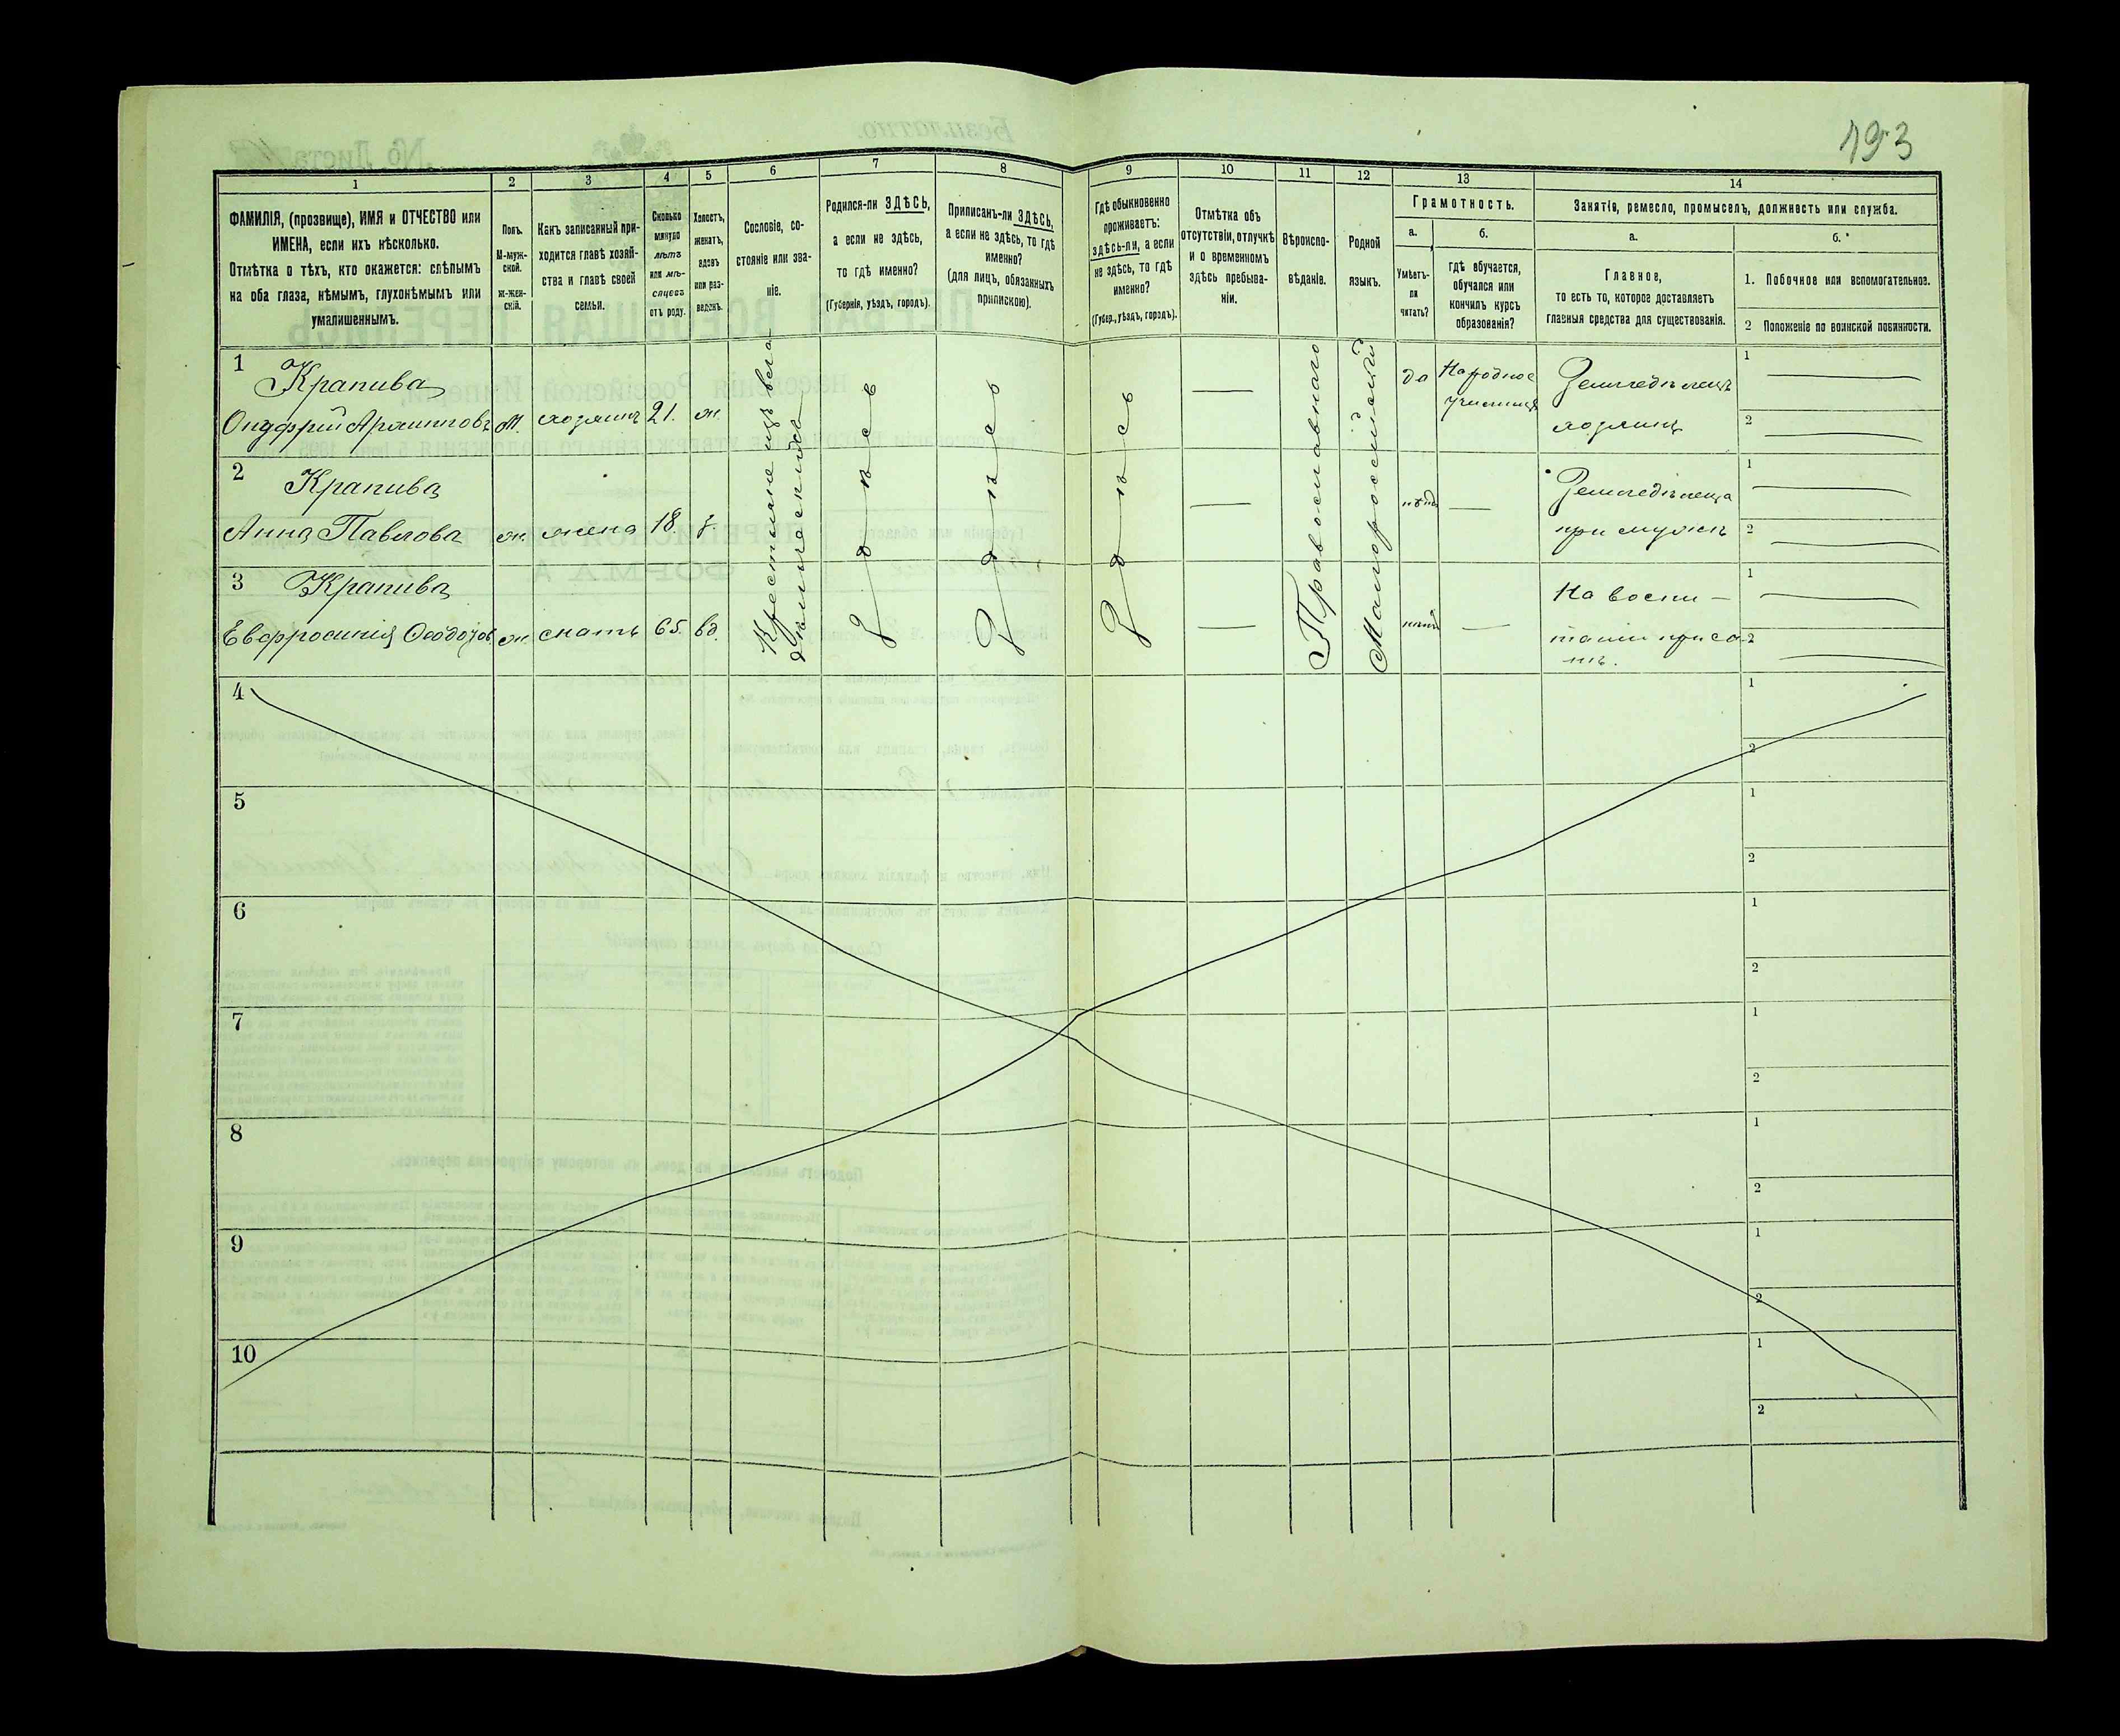 193
1
2
3
4
5
6
7
8
9
10
11
12
13
14
ФАМИЛІЯ, (прозвище), ИМЯ и ОТЧЕСТВО или
ИМЕНА, если ихъ нѣсколько.
Отмѣтка о тѣхъ, кто окажется: слѣпымъ
на оба глаза, нѣмымъ, глухонѣмымъ или
умалишеннымъ.
Полъ.
М-муж-
ской.
ж-жен-
скій.
Какъ записанный при-
ходится главѣ хозяй-
ства и главѣ своей
семьи.
Сколько
минуло
лѣтъ
или мѣ-
сяцевъ
отъ роду.
Холостъ,
женатъ,
вдовъ
или раз-
веденъ.
Сословіе, со-
стояніе или зва-
ніе.
Родился-ли ЗДѢСЬ,
а если не здѣсь,
то гдѣ именно?
(Губернія, уѣздъ, городъ).
Приписанъ-ли ЗДѢСЬ,
а если не здѣсь, то гдѣ
именно?
(для лицъ, обязанныхъ
припискою).
Гдѣ обыкновенно
проживаетъ:
здѣсь-ли, а если
не здѣсь, то гдѣ
именно?
(Губер., уѣздъ, городъ).
Отмѣтка объ
отсутствіи, отлучкѣ
и о временномъ
здѣсь пребыва-
ніи.
Вѣроиспо-
вѣданіе.
Родной
языкъ.
Грамотность.
а.
Умѣетъ-
ли
читать?
б.
гдѣ обучается,
обучался или
кончилъ курсъ
образованія?
Занятія, ремесло, промыселъ, должность или служба.
а.
Главное,
то есть то, которое доставляетъ
главныя средства для существованія.
б.
1. Побочное или вспомогательное.
2 Положеніе по воинской повинности.
1
Крапива
Онуфрій
м. хозяинъ 21. ж.
Крестьяне изъ
Здѣсь
Здѣсь
Здѣсь
Православнаго
Малороссійскій
да
Народное
училище
Земледѣлецъ
хозяинъ
1
2
2
Крапива
Анна Павлова ж. жена 18 з.
нѣтъ
Земледѣлица
при мужѣ
1
2
3
Крапива
Евфросинія ж. мать 65. вд.
нѣтъ
На воспи-
таніи при сы-
нѣ.
1
2
4
1
2
5
1
2
6
1
2
7
1
2
8
1
2
9
1
2
10
1
2